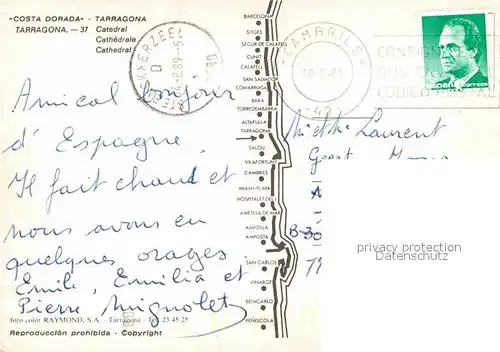 "COSTA DORADA" - TARRAGONA
TARRAGONA. — 37 Catedral
Cathédrale
Cathedral
BARCELONA
SITGES
SEGUR DE CALAFELL
CUNIT
CALAFELL
SAN SALVADOR
COMARRUGA
BARA
TORREDEMBARRA
ALTAFULLA
TARRAGONA
SALOU
VILAFORTUNY
CAMBRILS
MIAMI-PLAYA
HOSPITALET DEL I.
AMETLLA DE MAR
AMPOLLA
AMPOSTA
SAN CARLOS
VINAROZ
BENICARLO
PEÑISCOLA
CAMBRILS
CONSIGNE
SUS
CODIGO POSTAL
España correos
Amical bonjour
d'Espagne.
Il fait chaud et
nous avons eu
quelques orages.
Emile, Emilia et
Pierre Mignolet
Laurent
B-30
privacy protection
Datenschutz
foto color RAYMOND, S.A. - Tarragona - Tel. 23 45 25
Reproducción prohibida - Copyright